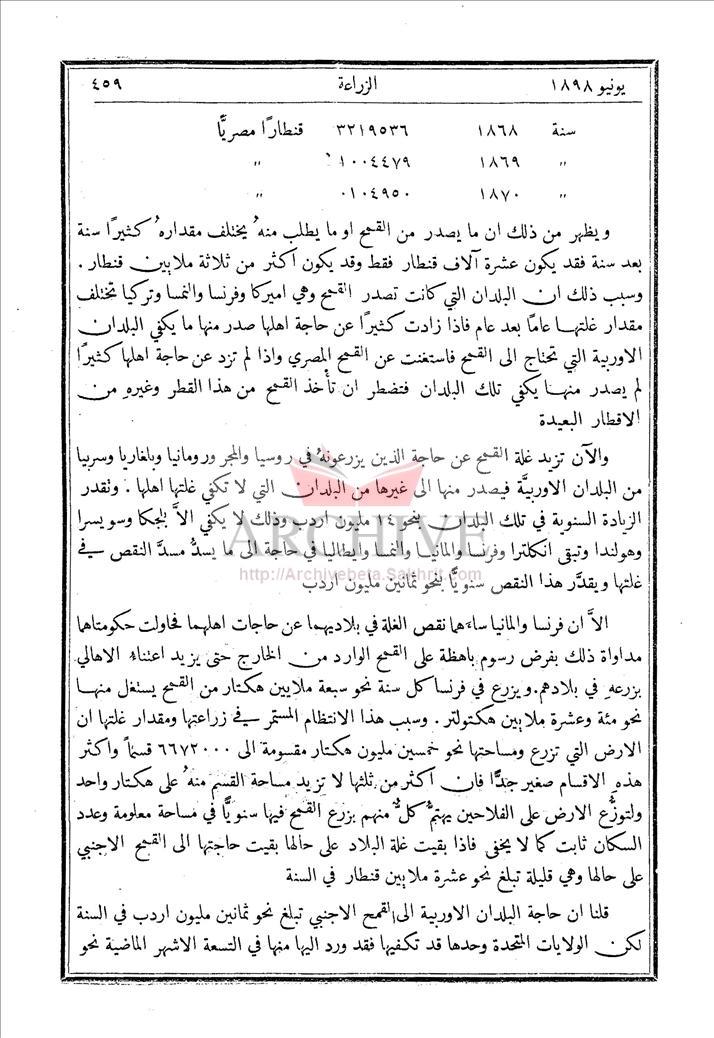 يونيو ١٨٩٨ الزراعة ٤٥٩
سنة ١٨٦٨ ٣٢١٩٥٣٦ قنطارًا مصريًّا
" ١٨٦٩ ١٠٠٤٤٧٩ "
" ١٨٧٠ ٠١٠٤٩٥٠ "
ويظهر من ذلك ان ما يصدر من القمح او ما يطلب منهُ يختلف مقدارهُ كثيرًا سنة
بعد سنة فقد يكون عشرة آلاف قنطار فقط وقد يكون اكثر من ثلاثة ملايين قنطار .
وسبب ذلك ان البلدان التي كانت تصدر القمح وهي اميركا وفرنسا والنمسا وتركيا تختلف
مقدار غلتها عامًا بعد عام فاذا زادت كثيرًا عن حاجة اهلها صدر منها ما يكفي البلدان
الاوربية التي تحتاج الى القمح فاستغنت عن القمح المصري واذا لم تزد عن حاجة اهلها كثيرًا
لم يصدر منها يكفي تلك البلدان فتضطر ان تأخذ القمح من هذا القطر وغيرهِ من
الاقطار البعيدة
والآن تزيد غلة القمح عن حاجة الذين يزرعونهُ في روسيا والمجر ورومانيا وبلغاريا وسربيا
من البلدان الاوربيَّة فيصدر منها الى غيرها من البلدان التي لا تكفي غلتها اهلها . وتقدر
الزيادة السنوية في تلك البلدان بنحو ١٤ مليون اردب وذلك لا يكفي الاَّ بلجكا وسويسرا
وهولندا وتبقى انكلترا وفرنسا والمانيا والنمسا وايطاليا في حاجة الى ما يسدُّ مسدَّ النقص في
غلتها ويقدَّر هذا النقص سنويًّا بنحو ثمانين مليون اردب
ARCHIVE
http://Archivebeta.Sakhrit.com
الاَّ ان فرنسا والمانيا ساءَهما نقص الغلة في بلاديهما عن حاجات اهلهما فحاولت حكومتاهما
مداواة ذلك بفرض رسوم باهظة على القمح الوارد من الخارج حتى يزيد اعتناءُ الاهالي
بزرعهِ في بلادهم . ويزرع في فرنسا كل سنة نحو سبعة ملايين هكتار من القمح يستغل منها
نحو مئة وعشرة ملايين هكتولتر . وسبب هذا الانتظام المستمر في زراعتها ومقدار غلتها ان
الارض التي تزرع ومساحتها نحو خمسين مليون هكتار مقسومة الى ٦٦٧٣٠٠٠ قسماً واكثر
هذهِ الاقسام صغير جدًّا فان اكثر من ثلثها لا تزيد مساحة القسم منهُ على هكتار واحد
ولتوزُّع الارض على الفلاحين يهتمُّ كلٌّ منهم بزرع القمح فيها سنويًّا في مساحة معلومة وعدد
السكان ثابت كما لا يخفى فاذا بقيت غلة البلاد على حالها بقيت حاجتها الى القمح الاجنبي
على حالها وهي قليلة تبلغ نحو عشرة ملايين قنطار في السنة
قلنا ان حاجة البلدان الاوربية الى القمح الاجنبي تبلغ نحو ثمانين مليون اردب في السنة
لكن الولايات المتحدة وحدها قد تكفيها فقد ورد اليها منها في التسعة الاشهر الماضية نحو